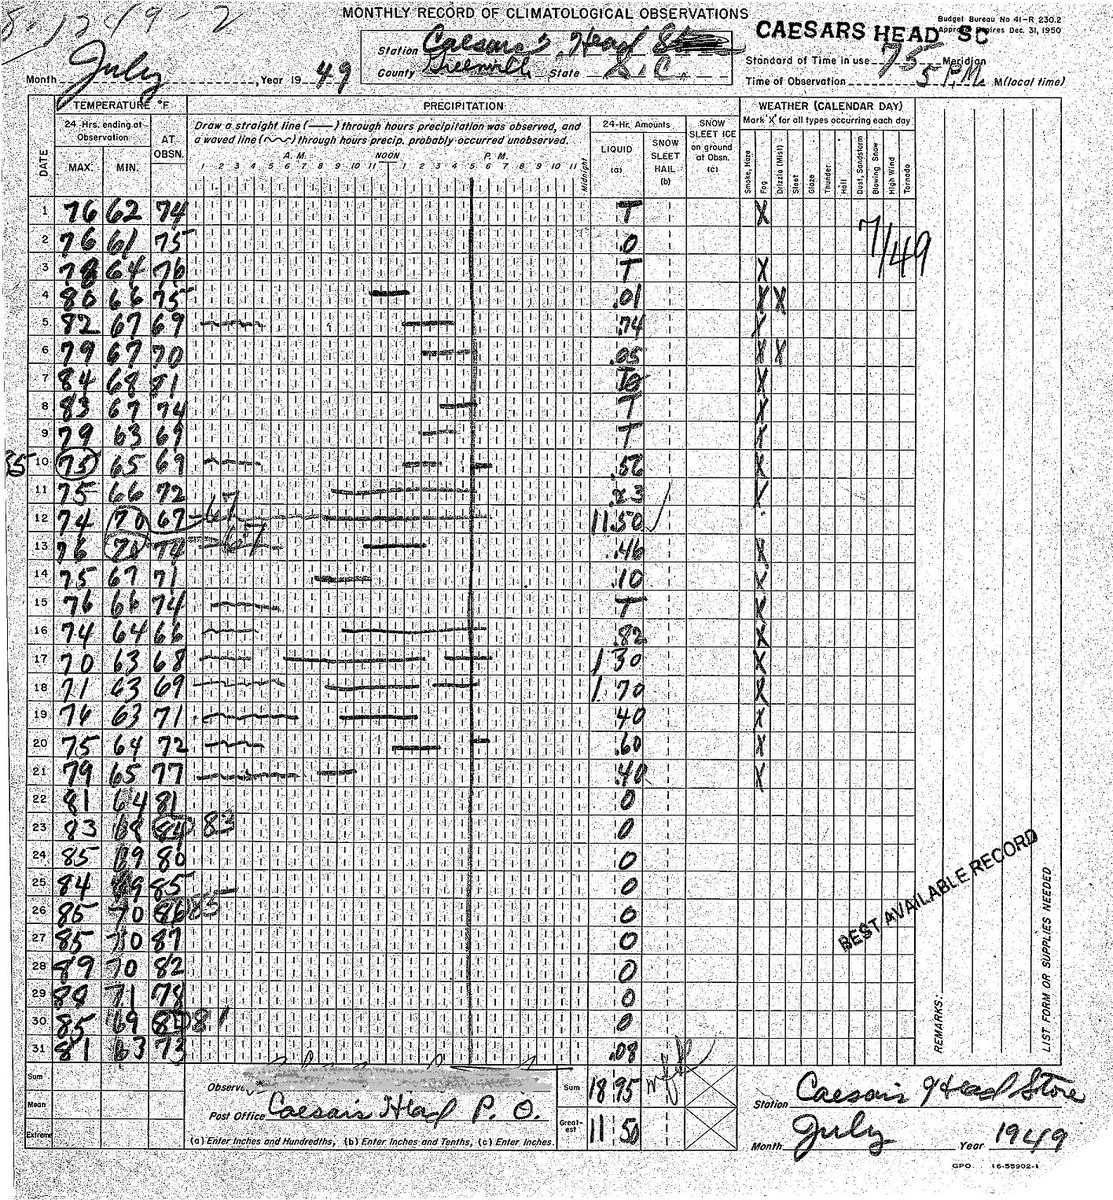 8-1249-2
MONTHLY RECORD OF CLIMATOLOGICAL OBSERVATIONS
Budget Bureau No 41-R 230.2
Approval Expires Dec. 31, 1950
CAESARS HEAD SC
Station Caesars Head
County Greenville State S.C.
Month July Year 19 49
Standard of Time in use 75 Meridian
Time of Observation 5 P.M. M(local time)
TEMPERATURE °F PRECIPITATION WEATHER (CALENDAR DAY)
DATE 24-Hrs. ending at Observation AT OBSN.
MAX. MIN.
Draw a straight line (—) through hours precipitation was observed, and
a waved line (~~) through hours precip. probably occurred unobserved.
A.M. NOON P.M.
1 2 3 4 5 6 7 8 9 10 11 1 2 3 4 5 6 7 8 9 10 11 Midnight
24-Hr. Amounts
LIQUID (a)
SNOW SLEET HAIL (b)
SNOW SLEET ICE on ground at Obsn. (c)
Mark "X" for all types occurring each day
Smoke, Haze Fog Drizzle (Mist) Sleet Glaze Thunder Hail Dust, Sandstorm Blowing Snow High Wind Tornado
1 76 62 74 T X
2 76 61 75 .0
7/49
3 78 64 76 T X
4 80 66 75 .01 X X
5 82 67 69 .74 X
6 79 67 70 .05 X X
7 84 68 81 X
8 83 67 74 T X
9 79 63 69 T X
85 10 75 65 69 .56 X
11 75 66 72 .23 X
12 74 70 67 67 11.50
13 76 70 74 67 .46 X
14 75 67 71 .10 X
15 76 66 74 T X
16 74 64 66 .82 X
17 70 63 68 1 30 X
18 71 63 69 1. 70 X
19 76 63 71 40 X
20 75 64 72 .60 X
21 79 65 77 .40 X
22 81 64 81 0
23 83 68 84 83 0
24 85 69 80 0
25 84 69 85 0
26 85 70 86 85 0
27 85 70 87 0
28 89 70 82 0
29 88 71 78 0
30 85 69 81 0
31 81 63 73 .08
BEST AVAILABLE RECORD
REMARKS:
LIST FORM OR SUPPLIES NEEDED
Sum
Mean
Extreme
Observer
Post Office Caesars Head P.O.
(a) Enter Inches and Hundredths, (b) Enter Inches and Tenths, (c) Enter Inches.
Sum 18 95
Greatest 11 50
Station Caesars Head Store
Month July Year 1949
GPO 16-55902-1